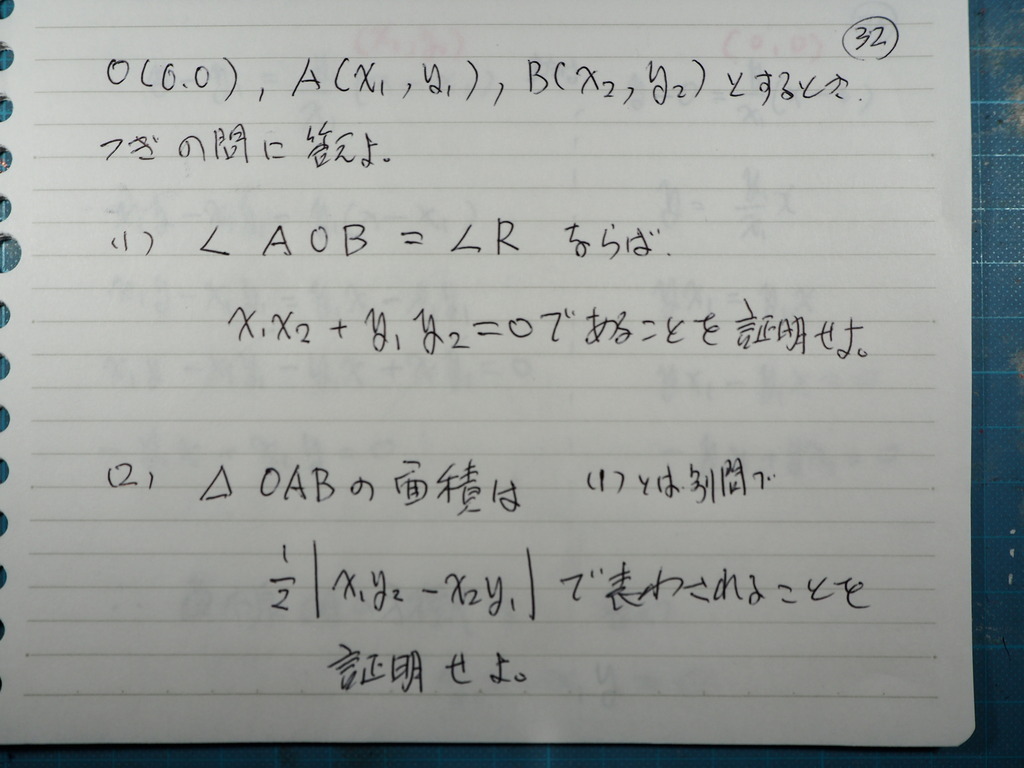 32
O(0.0), A(x₁, y₁), B(x₂, y₂)とするとき.
つぎの問に答えよ。
(1) ∠AOB = ∠R ならば.
x₁x₂ + y₁y₂ = 0であることを証明せよ。
(2) △OABの面積は (1)とは別問で
1/2|x₁y₂ - x₂y₁|で表わされることを
証明せよ。